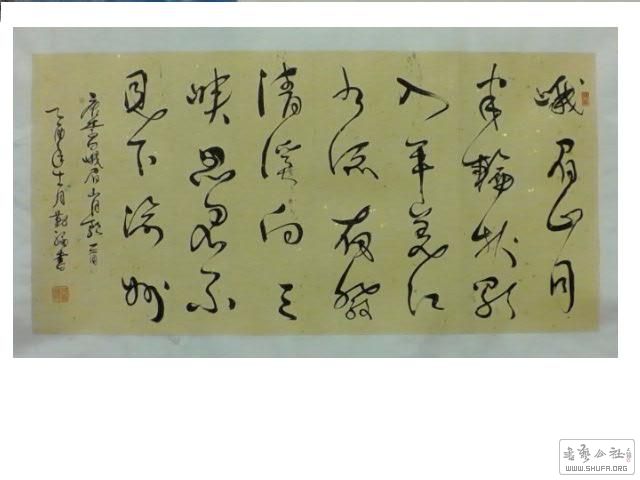 峨眉山月
半輪秋影
入平羌江
水流夜發
清溪向三
峽思君不
見下渝州
李白峨眉山月歌一首
乙酉年十月書
书艺公社
WWW.SHUFA.ORG